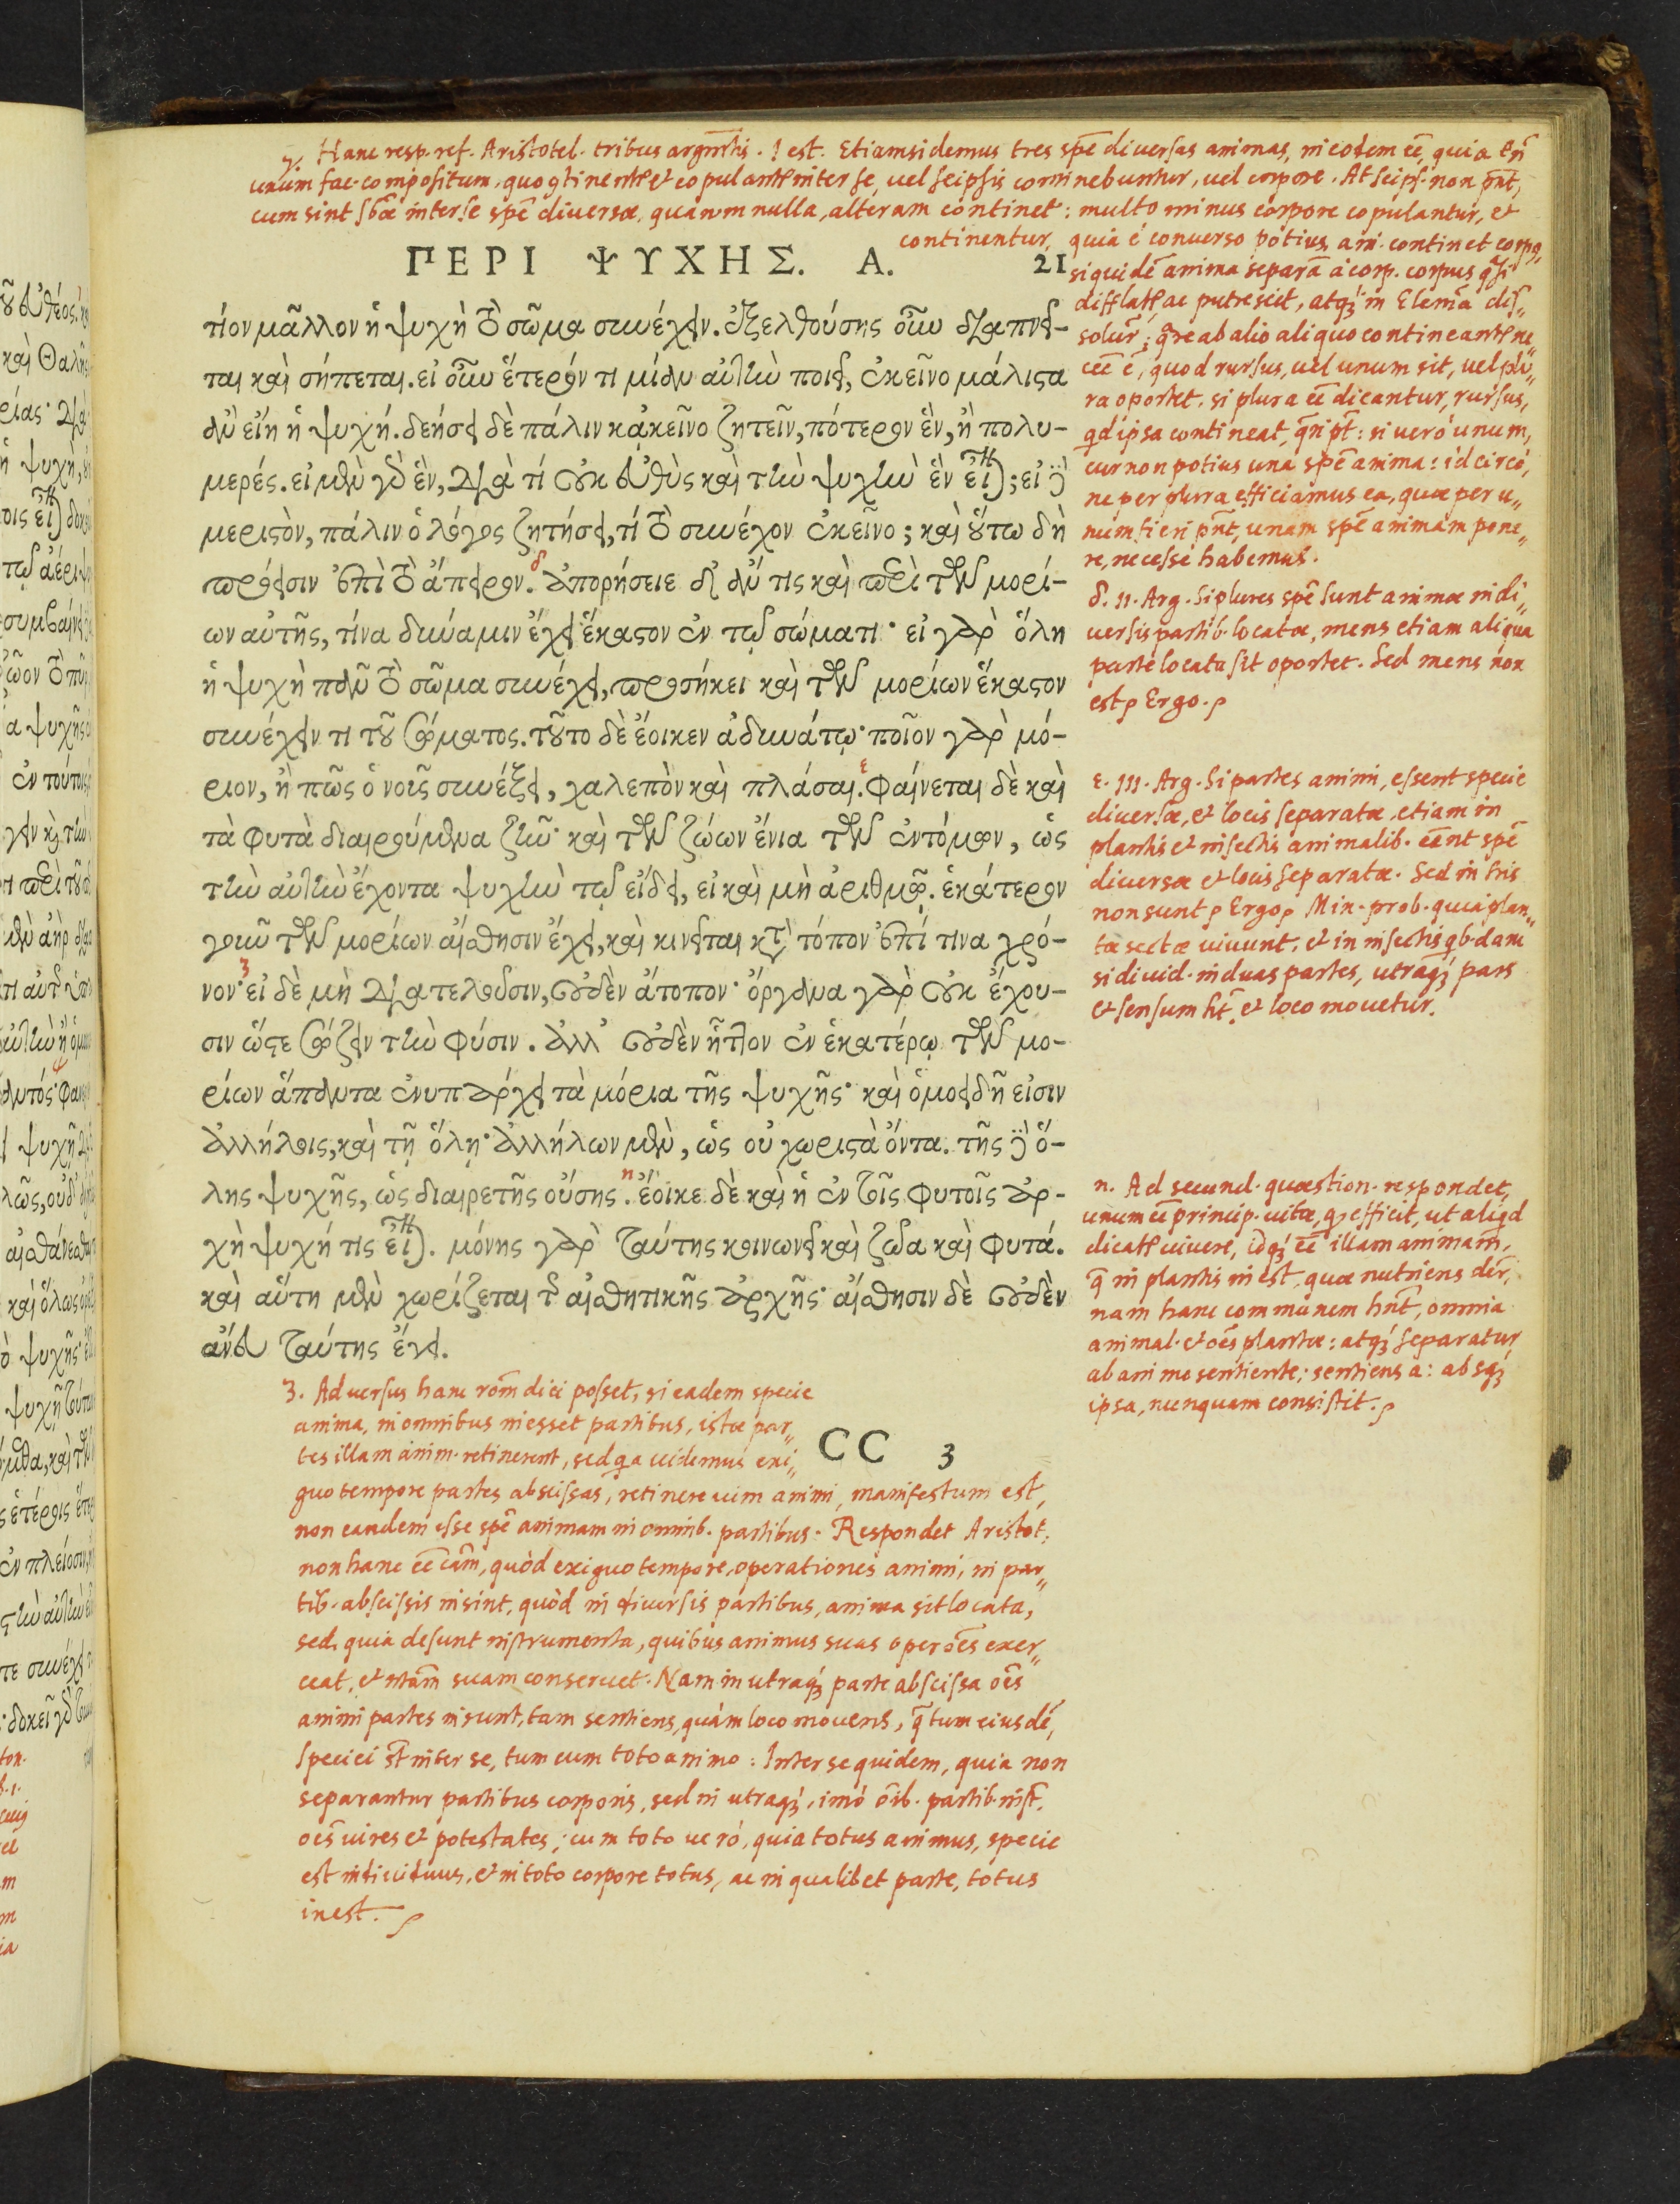 γ. Hanc resp. ref. Aristotel. tribus argm̃tis. I est. Etiamsi demus tres spē diuersas animas, in eodem eē, quia tñ
unum fac. compositum, quo continent et copulant inter se, uel seipsis continebuntur, uel corpore. At seips. non pñt,
cum sint sbæ inter se spē diuersæ, quarum nulla, alteram continet: multo minus corpore copulantur, et
continentur, quia è conuerso potius, ani. continet corpq,
siquidē anima separa à corp. corpus
difflat, ac putrescit, atq; in Elem̃a dis„
soluit̃: qre ab alio aliquo contineant ne„
ceē ē, quod rursus, uel unum sit, uel plu„
ra oportet. si plura eē dicantur, rursus,
qd ipsa contineat, qri pt̃: si uerò unum,
cur non potius una spē anima: idcircò,
ne per plura efficiamus ea, quæ per u„
num fieri pñt, unam spē animam pone„
re, necesse habemus.
ΠΕΡΙ ΨΥΧΗΣ. Α. 21
τίον μᾶλλον ἡ ψυχὴ τὸ σῶμα συνέχειν. ἐξελθούσης οὖν διαπνεῖ-
ται καὶ σήπεται. εἰ οὖν ἕτερόν τι μίαν αὐτὴν ποιεῖ, ἐκεῖνο μάλιστα
ἂν εἴη ἡ ψυχή. δεήσει δὲ πάλιν κἀκεῖνο ζητεῖν, πότερον ἓν, ἢ πολυ-
μερές. εἰ μὲν γὰρ ἓν, διὰ τί οὐκ εὐθὺς καὶ τὴν ψυχὴν ἓν εἶναι; εἰ δὲ
μεριστὸν, πάλιν ὁ λόγος ζητήσει, τί τὸ συνέχον ἐκεῖνο; καὶ οὕτω δὴ
πρόεισιν ἐπὶ τὸ ἄπειρον. δ ἀπορήσειε δ᾽ ἄν τις καὶ περὶ τῶν μορί-
ων αὐτῆς, τίνα δύναμιν ἔχει ἕκαστον ἐν τῷ σώματι· εἰ γὰρ ὅλη
ἡ ψυχὴ πᾶν τὸ σῶμα συνέχει, προσήκει καὶ τῶν μορίων ἕκαστον
συνέχειν τι τοῦ σώματος. τοῦτο δὲ ἔοικεν ἀδυνάτῳ· ποῖον γὰρ μό-
ριον, ἢ πῶς ὁ νοῦς συνέξει, χαλεπὸν καὶ πλάσαι. ε φαίνεται δὲ καὶ
τὰ φυτὰ διαιρούμενα ζῆν· καὶ τῶν ζώων ἔνια τῶν ἐντόμων, ὡς
τὴν αὐτὴν ἔχοντα ψυχὴν τῷ εἴδει, εἰ καὶ μὴ ἀριθμῷ. ἑκάτερον
γοῦν τῶν μορίων αἴσθησιν ἔχει, καὶ κινεῖται κατὰ τόπον ἐπί τινα χρό-
νον· ζ εἰ δὲ μὴ διατελοῦσιν, οὐδὲν ἄτοπον· ὄργανα γὰρ οὐκ ἔχου-
σιν ὥστε σώζειν τὴν φύσιν. ἀλλ᾽ οὐδὲν ἧττον ἐν ἑκατέρῳ τῶν μο-
ρίων ἅπαντα ἐνυπάρχει τὰ μόρια τῆς ψυχῆς· καὶ ὁμοειδῆ εἰσιν
ἀλλήλοις, καὶ τῇ ὅλῃ· ἀλλήλων μὲν, ὡς οὐ χωριστὰ ὄντα. τῆς δὲ ὅ-
λης ψυχῆς, ὡς διαιρετῆς οὔσης. η ἔοικε δὲ καὶ ἡ ἐν τοῖς φυτοῖς ἀρ-
χὴ ψυχή τις εἶναι. μόνης γὰρ ταύτης κοινωνεῖ καὶ ζῶα καὶ φυτά.
καὶ αὕτη μὲν χωρίζεται τῆς αἰσθητικῆς ἀρχῆς· αἴσθησιν δὲ οὐδὲν
ἄνευ ταύτης ἔχει.
CC 3
δ. II. Arg. Si plures spē sunt animæ in di„
uersis partib. locatæ, mens etiam aliqua
parte locata sit oportet. Sed mens non
est Ergo.
ε. III. Arg. Si partes animi, essent specie
diuersæ, et locis separatæ, etiam in
plantis et insectis animalib. eēnt spē
diuersæ et locis separatæ. Sed in his
non sunt Ergo Min. prob. quia plan„
tæ sectæ uiuunt, et in insectis qb.dam
si diuid. in duas partes, utraq; pars
et sensum ht̃. et loco mouetur.
η. Ad secund. quæstion. respondet,
unum eē princip. uitæ, q efficit, ut aliqd
dicat uiuere, idq; eē illam animam,
q̃ in plantis inest, quæ nutriens dir̃,
nam hanc communem hñt, omnia
animal. et oēs plantæ: atq; separatur
ab animo sentiente; sentiens a: absq;
ipsa, nunquam consistit.
ζ. Aduersus hanc rom̃ dici posset, si eadem specie
anima, in omnibus inesset partibus, istæ par„
tes illam anim. retinerent, sed qa uidemus exi„
guo tempore partes abscissas, retinere uim animi, manifestum est,
non eandem esse spē animam in omnib. partibus. Respondet Aristot.
non hanc eē cam̃, quòd exiguo tempore, operationes animi, in par„
tib. abscissis insint, quòd in diuersis partibus, anima sit locata,
sed, quia desunt instrumenta, quibus animus suas operoēs exer„
ceat, et ntam̃ suam conseruet. Nam in utraq; parte abscissa oēs
animi partes insunt, tam sentiens, quàm loco mouens, q̃ tum eiusdē,
speciei st̃ inter se, tum cum toto animo: Inter se quidem, quia non
separantur partibus corporis, sed in utraq;, imò oīb. partib. inst̃,
oēs uires et potestates; cum toto uerò, quia totus animus, specie
est indiuiduus, et in toto corpore totus, ac in qualibet parte, totus
inest.